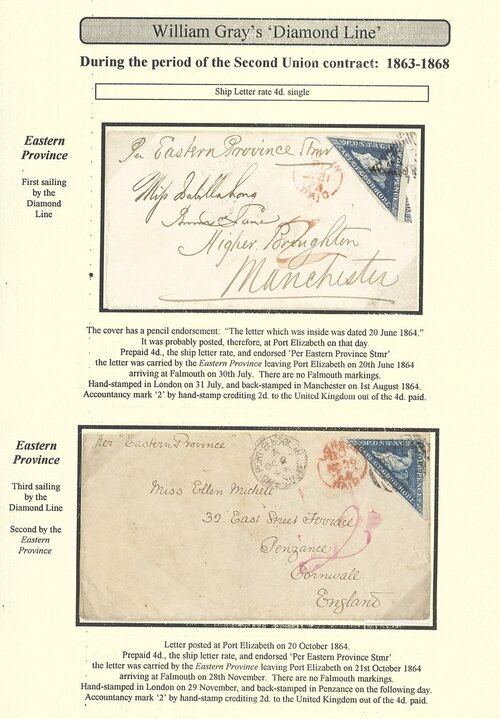 William Gray's 'Diamond Line'
During the period of the Second Union contract: 1863-1868
Ship Letter rate 4d. single
Eastern
Province
First sailing
by the
Diamond
Line
Per Eastern Province Stmr
POSTAGE
CAPE OF GOOD HOPE
PAID
Miss
Lane
Higher Broughton
Manchester
The cover has a pencil endorsement: "The letter which was inside was dated 20 June 1864."
It was probably posted, therefore, at Port Elizabeth on that day.
Prepaid 4d., the ship letter rate, and endorsed 'Per Eastern Province Stmr'
the letter was carried by the Eastern Province leaving Port Elizabeth on 20th June 1864
arriving at Falmouth on 30th July. There are no Falmouth markings.
Hand-stamped in London on 31 July, and back-stamped in Manchester on 1st August 1864.
Accountancy mark '2' by hand-stamp crediting 2d. to the United Kingdom out of the 4d. paid.
Eastern
Province
Third sailing
by the
Diamond Line
Second by the
Eastern
Province
per "Eastern Province"
POSTAGE
CAPE OF GOOD HOPE
PAID
Miss Ellen Michell
32 East Street Terrace
Penzance
Cornwall
England
2
Letter posted at Port Elizabeth on 20 October 1864.
Prepaid 4d., the ship letter rate, and endorsed 'Per Eastern Province Stmr'
the letter was carried by the Eastern Province leaving Port Elizabeth on 21st October 1864
arriving at Falmouth on 28th November. There are no Falmouth markings.
Hand-stamped in London on 29 November, and back-stamped in Penzance on the following day.
Accountancy mark '2' by hand-stamp crediting 2d. to the United Kingdom out of the 4d. paid.